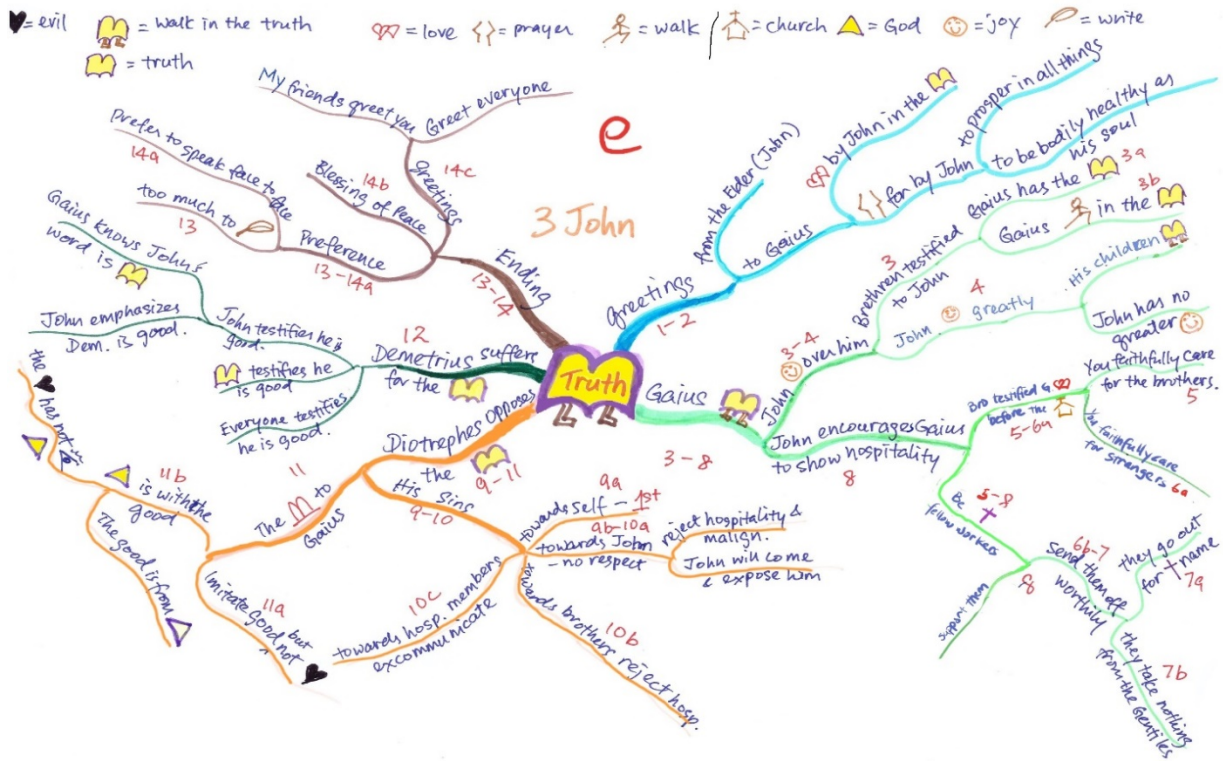 = evil
= walk in the truth
= love
= prayer
= walk
= church
= God
= joy
= write
= truth
e
3 John
Truth
Greetings
1-2
from the Elder (John)
to Gaius
by John in the
for by John
to prosper in all things
to be bodily healthy as
his soul
Gaius
3-8
John
over him
3-4
Brethren testified
to John
3
Gaius has the
3a
Gaius
in the
3b
John
greatly
4
His children
John has no
greater
John encourages Gaius
to show hospitality
8
Bro testified G
before the
5-6a
You faithfully care
for the brothers.
5
You faithfully care
for strangers
6a
Be
fellow workers
5-8
support them
8
Send them off
worthily
6b-7
they go out
for
name
7a
they take nothing
from the Gentiles
7b
Diotrephes opposes
the
9-11
His Sins
9-10
towards self - 1st
9a
towards John
- no respect
9b-10a
reject hospitality &
malign.
John will come
& expose him
towards brothers reject hosp.
10b
towards hosp. members
excommunicate
10c
The M to
Gaius
11
Imitate good but
not
11a
is with the
good
11b
The good is from
the
has not
Demetrius suffers
for the
12
John testifies he is
good.
Gaius knows John's
word is
John emphasizes
Dem. is good.
testifies he
is good
Everyone testifies
he is good.
Ending
13-14
Preference
13-14a
too much to
13
Prefer to speak face to
face
14a
Blessing of Peace
14b
greetings
14c
My friends greet you
Greet everyone